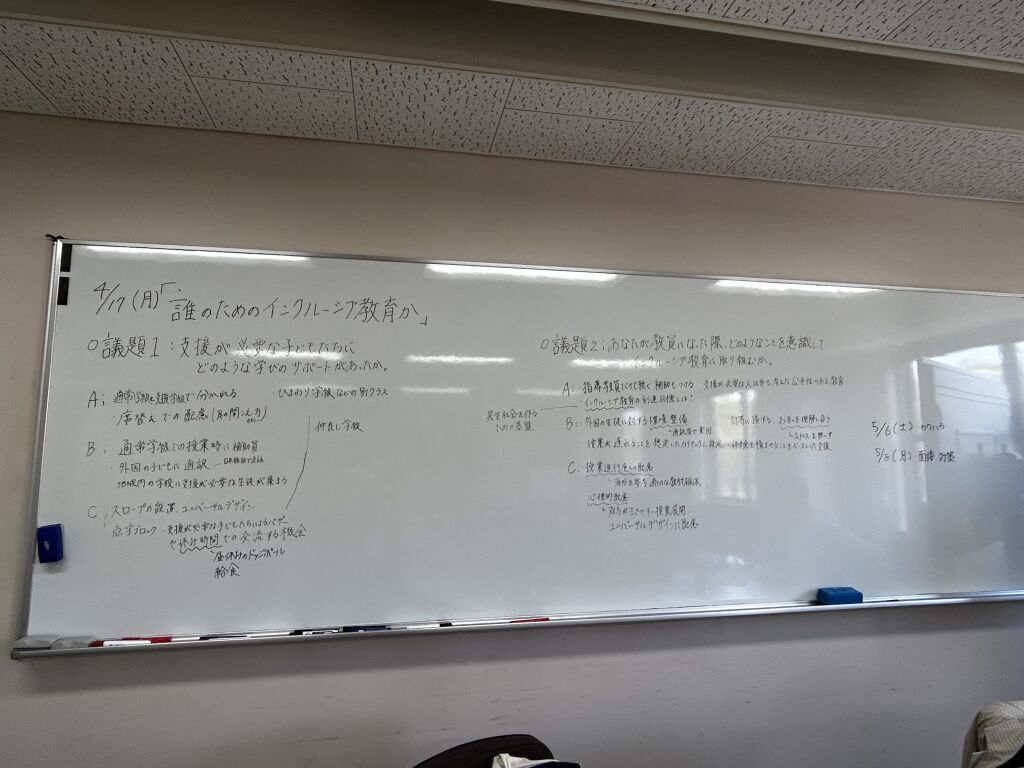 4/17(月)「誰のためのインクルーシブ教育か」
○議題1:支援が必要な子どもたちに
どのような学びのサポートがあったか。
A; 通常学級と支援学級で分かれる ・ひまわり学級などの別クラス
・席替えでの配慮
仲良し学級
B; ・通常学校での授業時に補助員
・外国の子どもに通訳
地域内の学校に支援が必要な生徒が集まる
C; スロープの設置、ユニバーサルデザイン
点字ブロック ・支援が必要な子どもたちによるバザー
や休み時間での交流する機会
昼休みのドッジボール
給食
○議題2;あなたが教員になった際、どのようなことを意識して
インクルーシブ教育に取り組むか。
A: ・指導教員だけで無く補助もつける 支援が必要な人以外も考えた公平性のある教育
・インクルーシブ教育の到達目標とは?
共生社会を作る
ための基盤
B: ・外国の生徒に対する環境整備 お互いを理解し合う
・授業が遅れることを想定したカリキュラム設定
C: ・授業進行度への配慮
心理的配慮
双方が生きやすい授業展開
ユニバーサルデザインに配慮
5/6(土)
5/8(月) 面接対策